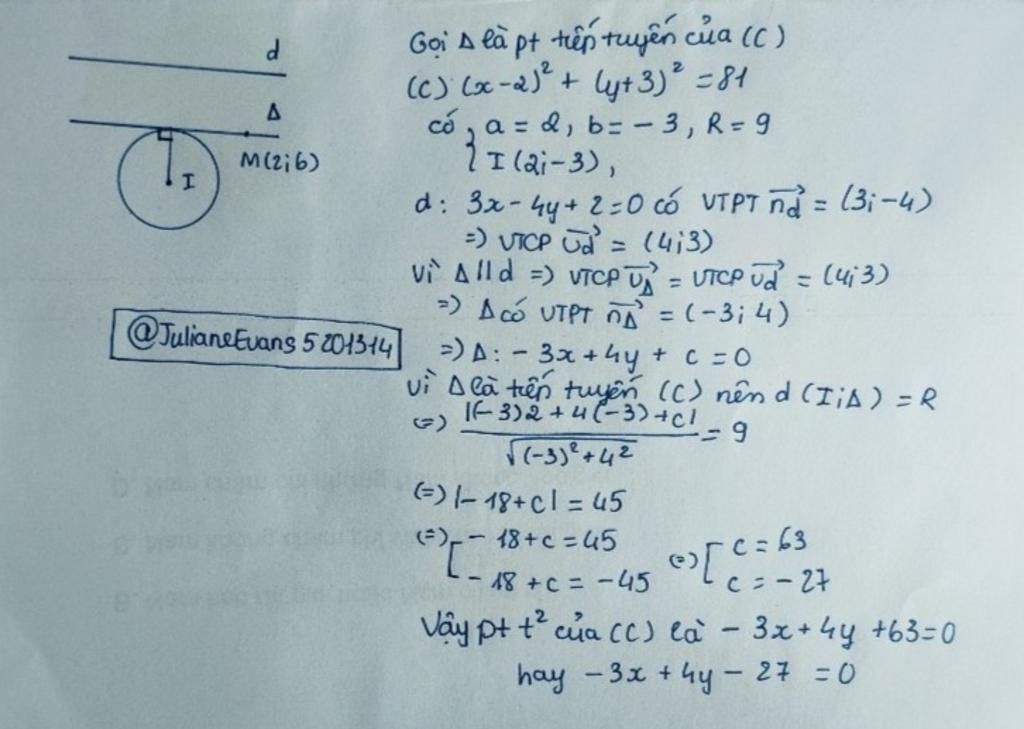 d
Δ
M(2;6)
I
@JulianeEvans5201314
Gọi Δ là pt tiếp tuyến của (C)
(C) (x-2)² + (y+3)² = 81
có { a = 2, b = -3, R = 9
I (2;-3),
d: 3x - 4y + 2 = 0 có VTPT n⃗d = (3;-4)
=) VTCP u⃗d = (4;3)
Vì Δ // d =) VTCP u⃗Δ = VTCP u⃗d = (4;3)
=) Δ có VTPT n⃗Δ = (-3;4)
=) Δ: -3x + 4y + c = 0
Vì Δ là tiếp tuyến (C) nên d (I;Δ) = R
(=) |(-3)2 + 4(-3) + c| / √(-3)² + 4² = 9
(=) |-18 + c| = 45
(=) [ -18 + c = 45 (=) [ c = 63
-18 + c = -45 c = -27
Vậy pt t² của (C) là -3x + 4y + 63 = 0
hay -3x + 4y - 27 = 0